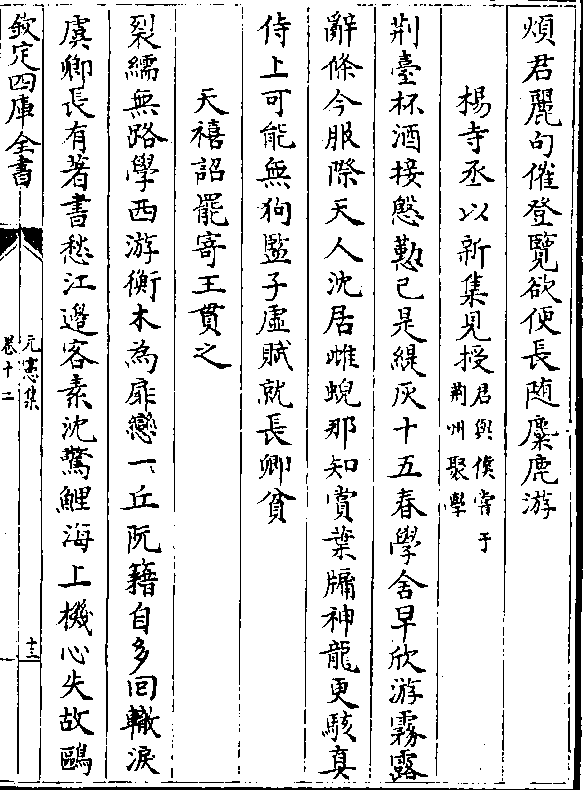 煩君麗句催登覽欲便長随麋鹿游
楊寺丞以新集見授君與僕嘗于荆州聚學
荆臺杯酒接慇懃已是緹灰十五春學舍早欣游霧露
辭條今服際天人沈居雌蜺那知賞葉牖神龍更駭真
侍上可能無狗監子虛賦就長卿貧
天禧詔罷寄王貫之
裂繻無路學西游衡木為扉戀一丘阮籍自多回轍淚
虞卿長有著書愁江邉客素沈驚鯉海上機心失故鷗
欽定四庫全書
元憲集
卷十二
十三